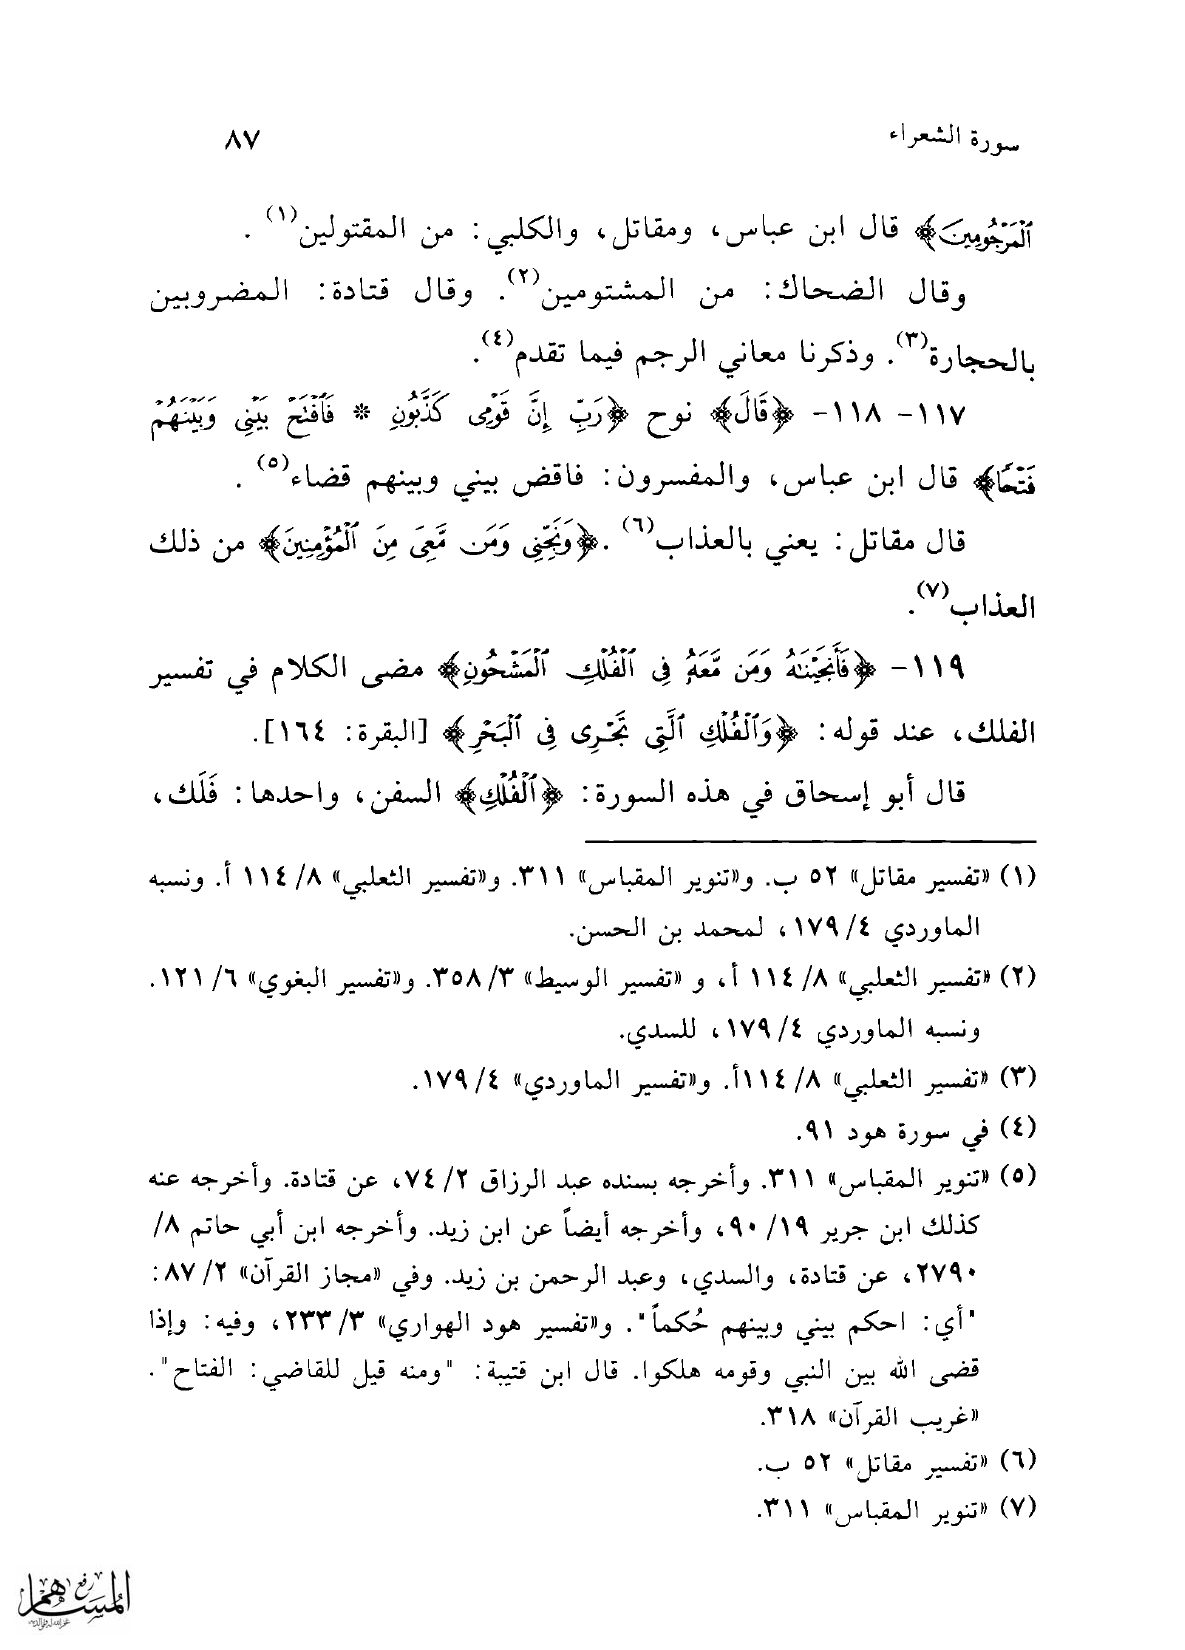 سورة الشعراء ٨٧
ٱلْمَرْجُومِينَ﴾ قال ابن عباس، ومقاتل، والكلبي: من المقتولين(١) .
وقال الضحاك: من المشتومين(٢). وقال قتادة: المضروبين
بالحجارة(٣). وذكرنا معاني الرجم فيما تقدم(٤).
١١٧- ١١٨- ﴿قَالَ﴾ نوح ﴿رَبِّ إِنَّ قَوْمِى كَذَّبُونِ * فَٱفْتَحْ بَيْنِى وَبَيْنَهُمْ
فَتْحًا﴾ قال ابن عباس، والمفسرون: فاقض بيني وبينهم قضاء(٥) .
قال مقاتل: يعني بالعذاب(٦) .﴿وَنَجِّنِى وَمَن مَّعِىَ مِنَ ٱلْمُؤْمِنِينَ﴾ من ذلك
العذاب(٧).
١١٩- ﴿فَأَنجَيْنَٰهُ وَمَن مَّعَهُۥ فِى ٱلْفُلْكِ ٱلْمَشْحُونِ﴾ مضى الكلام في تفسير
الفلك، عند قوله: ﴿وَٱلْفُلْكِ ٱلَّتِى تَجْرِى فِى ٱلْبَحْرِ﴾ [البقرة: ١٦٤].
قال أبو إسحاق في هذه السورة: ﴿ٱلْفُلْكِ﴾ السفن، واحدها: فَلَك،
(١) «تفسير مقاتل» ٥٢ ب. و«تنوير المقباس» ٣١١. و«تفسير الثعلبي» ٨/ ١١٤ أ. ونسبه
الماوردي ٤/ ١٧٩، لمحمد بن الحسن.
(٢) «تفسير الثعلبي» ٨/ ١١٤ أ، و «تفسير الوسيط» ٣/ ٣٥٨. و«تفسير البغوي» ٦/ ١٢١.
ونسبه الماوردي ٤/ ١٧٩، للسدي.
(٣) «تفسير الثعلبي» ٨/ ١١٤أ. و«تفسير الماوردي» ٤/ ١٧٩.
(٤) في سورة هود ٩١.
(٥) «تنوير المقباس» ٣١١. وأخرجه بسنده عبد الرزاق ٢/ ٧٤، عن قتادة. وأخرجه عنه
كذلك ابن جرير ١٩/ ٩٠، وأخرجه أيضاً عن ابن زيد. وأخرجه ابن أبي حاتم ٨/
٢٧٩٠، عن قتادة، والسدي، وعبد الرحمن بن زيد. وفي «مجاز القرآن» ٢/ ٨٧:
"أي: احكم بيني وبينهم حُكماً". و«تفسير هود الهواري» ٣/ ٢٣٣، وفيه: وإذا
قضى الله بين النبي وقومه هلكوا. قال ابن قتيبة: "ومنه قيل للقاضي: الفتاح".
«غريب القرآن» ٣١٨.
(٦) «تفسير مقاتل» ٥٢ ب.
(٧) «تنوير المقباس» ٣١١.